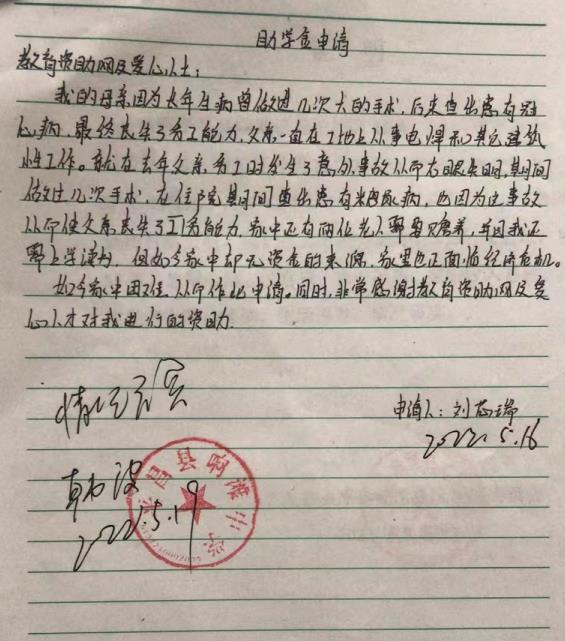 助学金申请
教育资助网及爱心人士:
我的母亲因为长年生病曾做过几次大的手术,后来查出患有冠
心病,最终丧失了务工能力,父亲一直在工地上从事电焊和其它建筑
性工作。就在去年父亲务工时发生了意外事故从而右眼失明,其间
做过几次手术,在住院其间查出患有糖尿病,也因为这事故
从而使父亲丧失了工务能力,家中还有两位老人需要赡养,并且我还
需上学读书,但如今家中却无资金的来源,家里也正面临经济危机。
如今家中困难,从而作此申请。同时,非常感谢教育资助网及爱
心人才对我进行的资助.
情况属实
申请人:刘芯瑞
2022.5.16
韩波
2022.5.19
昌县响滩中学